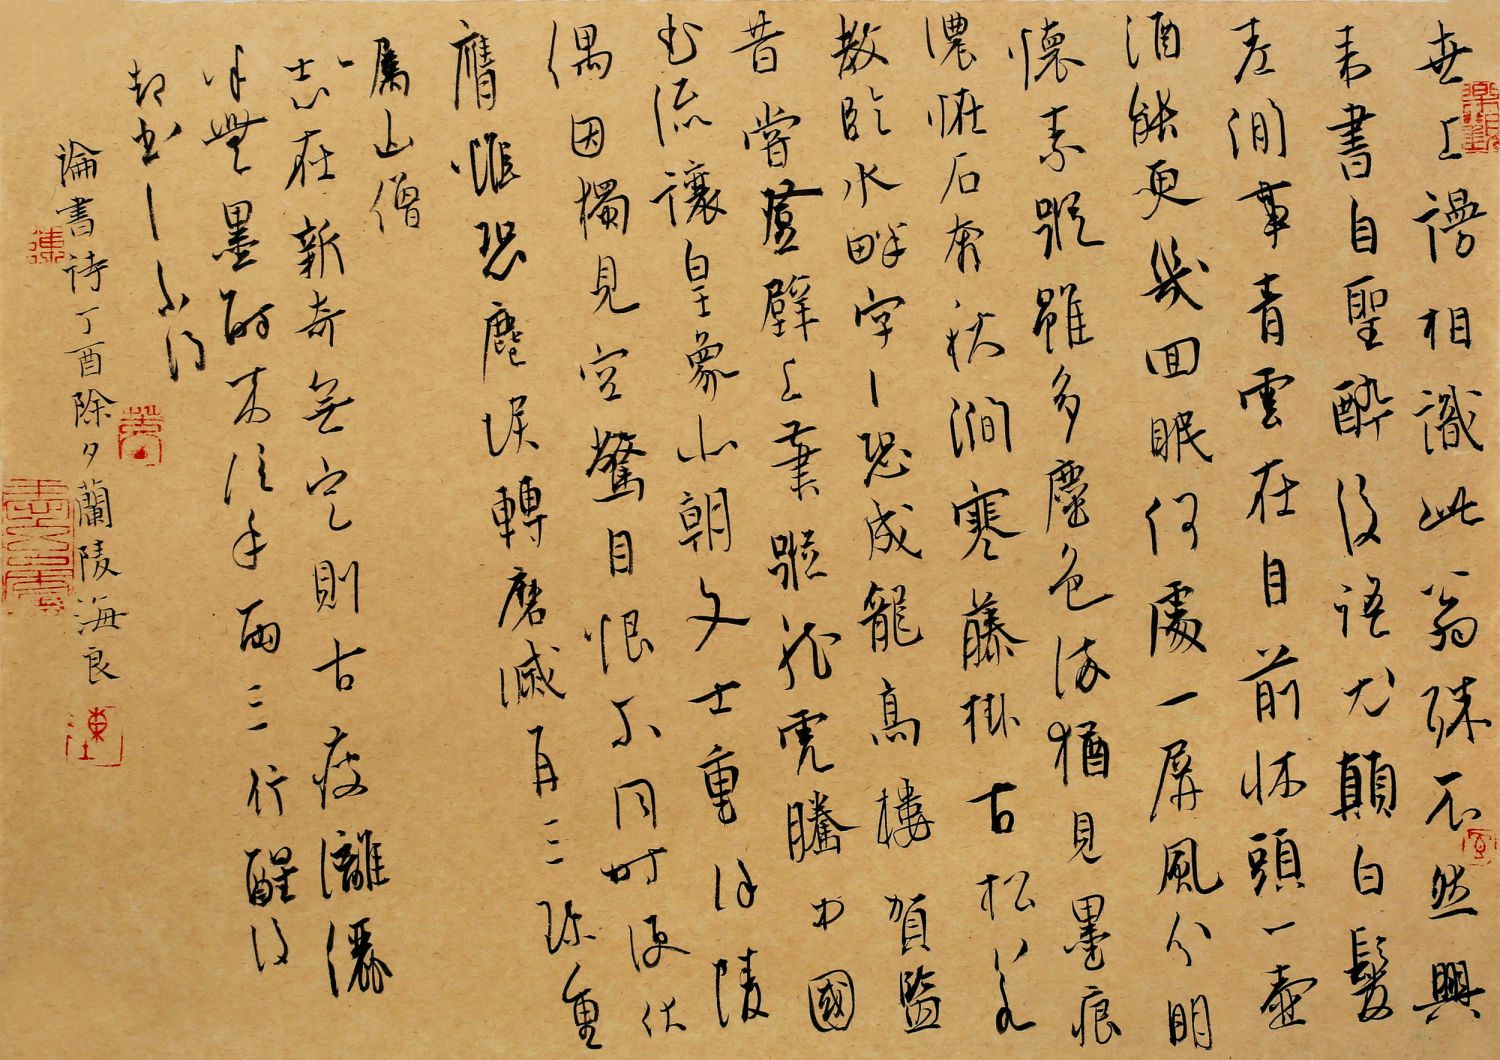 世上謾相識此翁殊不然興
来書自聖醉後語尤顛白髮
老閒事青雲在目前牀頭一壺
酒能更幾回眠何處一屏風分明
懷素蹤雖多塵色染猶見墨痕
濃怪石奔秋澗寒藤掛古松若
教臨水畔字〻恐成龍高樓賀監
昔嘗登壁上筆蹤龍虎騰中國
書流讓皇象北朝文士重徐陵
偶因獨見空驚目恨不同時便伏
膺惟恐塵埃轉磨滅再三珍重
屬山僧
志在新奇無定則古瘦灕儷
半無墨醉来信手兩三行醒後
却書〻不得
論書詩丁酉除夕蘭陵海良